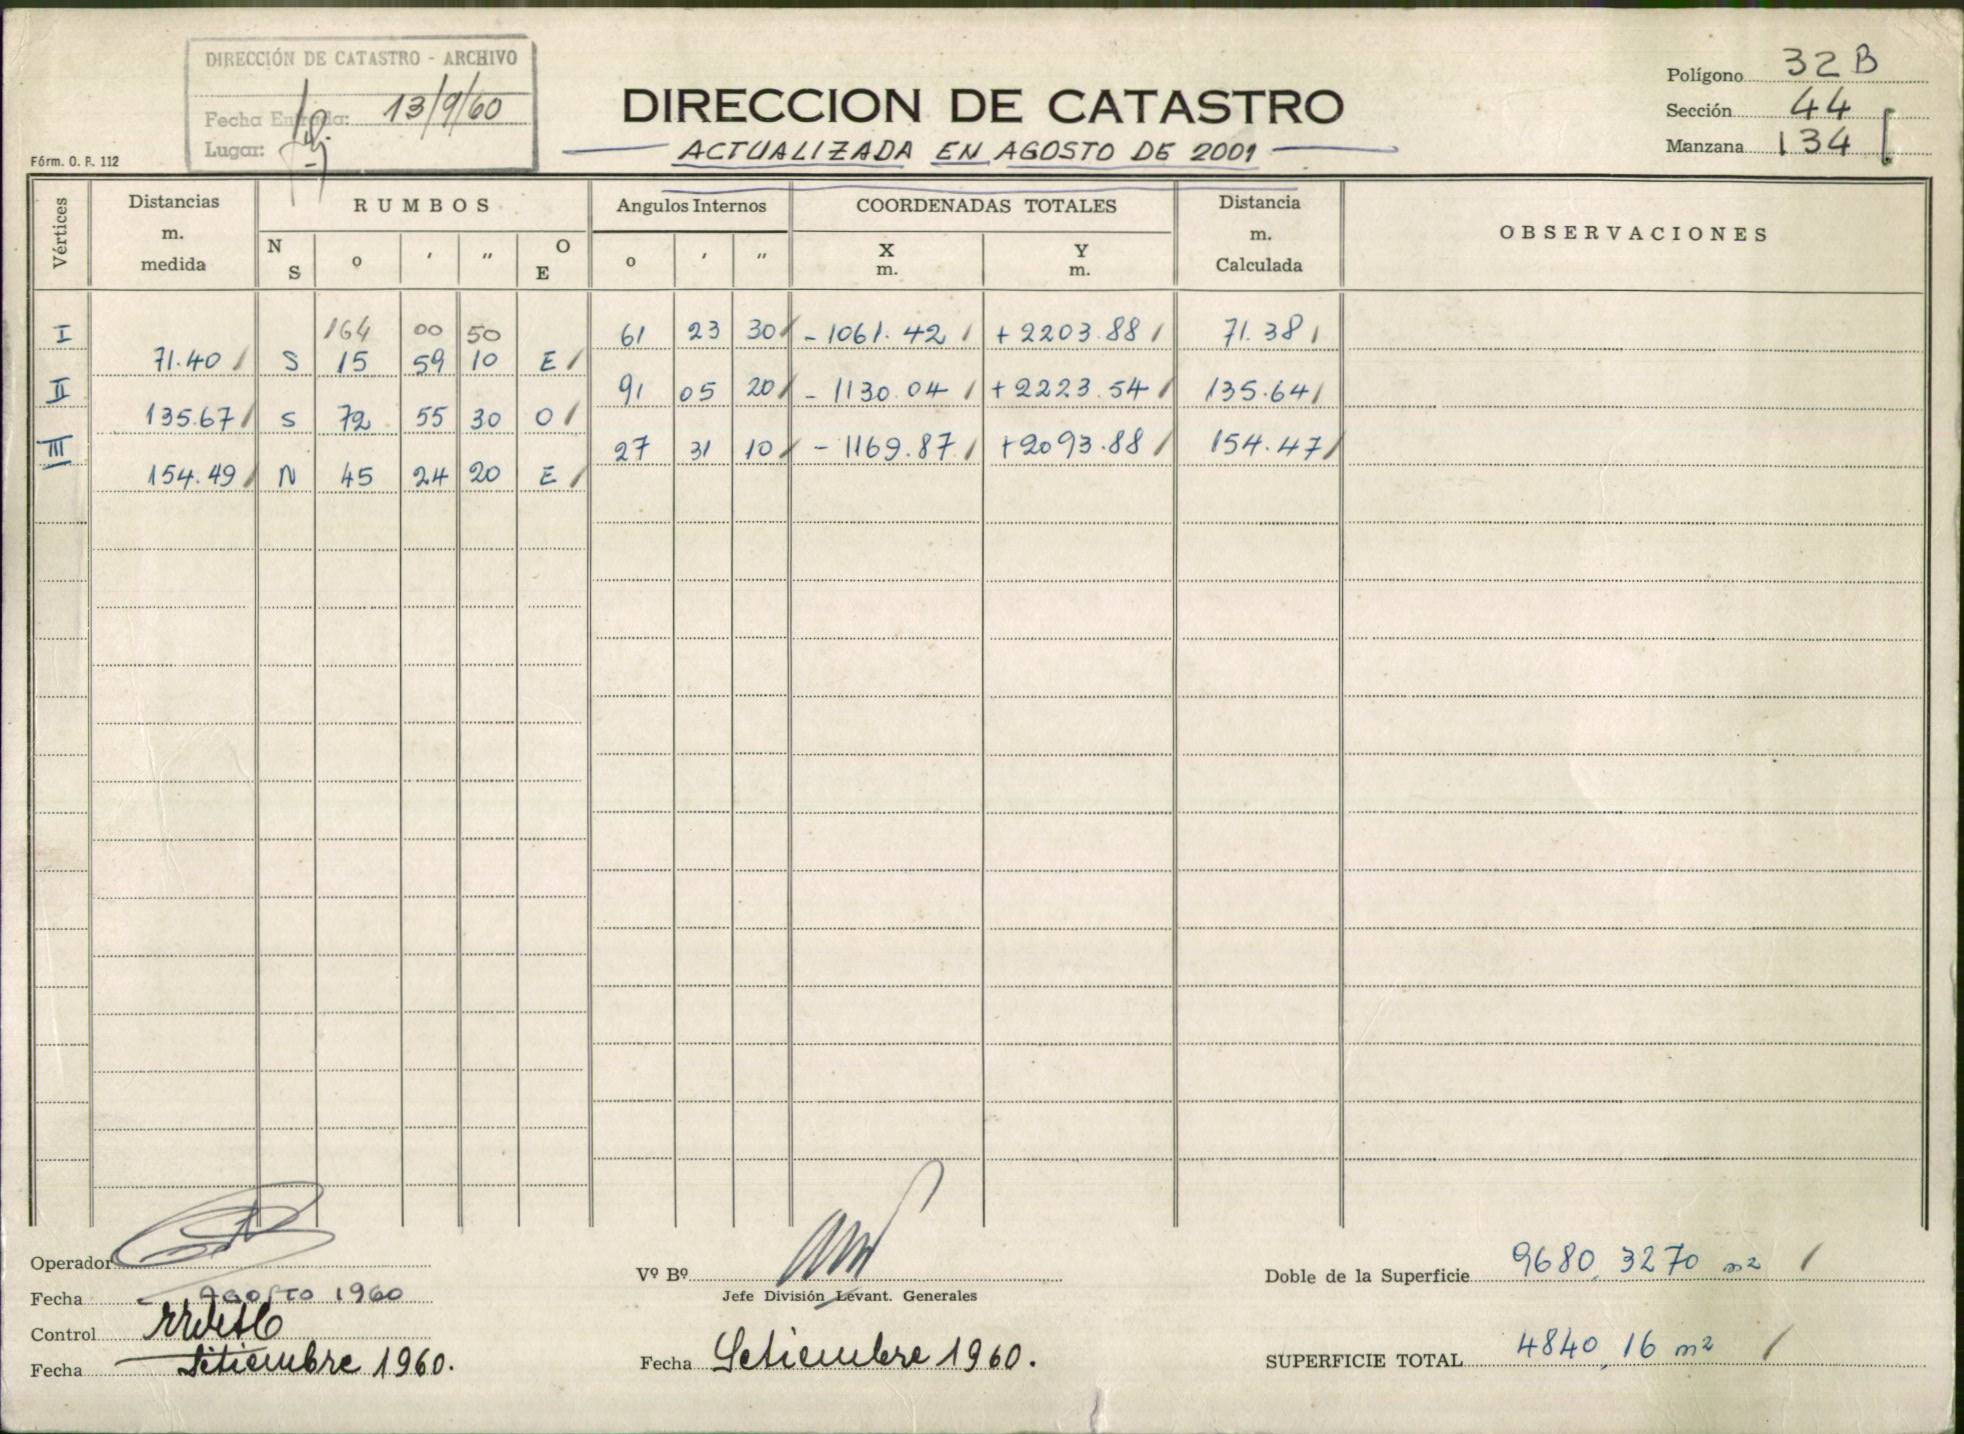 DIRECCIÓN DE CATASTRO - ARCHIVO
Fecha Entrada: 13/9/60
Lugar:
Fórm. O. F. 112
DIRECCION DE CATASTRO
ACTUALIZADA EN AGOSTO DE 2001
Polígono 32 B
Sección 44
Manzana 134
Vértices Distancias m. medida RUMBOS Angulos Internos COORDENADAS TOTALES Distancia m. Calculada OBSERVACIONES
N S o ′ ″ O E o ′ ″ X m. Y m.
164 00 50
I 61 23 30 - 1061.42 + 2203.88 71.38
71.40 S 15 59 10 E
II 91 05 20 - 1130.04 + 2223.54 135.64
135.67 S 72 55 30 O
III 27 31 10 - 1169.87 + 2093.88 154.47
154.49 N 45 24 20 E
Operador
Fecha AGOSTO 1960
Control
Fecha Setiembre 1960.
Vº Bº
Jefe División Levant. Generales
Fecha Setiembre 1960.
Doble de la Superficie 9680,3270 m2
SUPERFICIE TOTAL 4840,16 m2